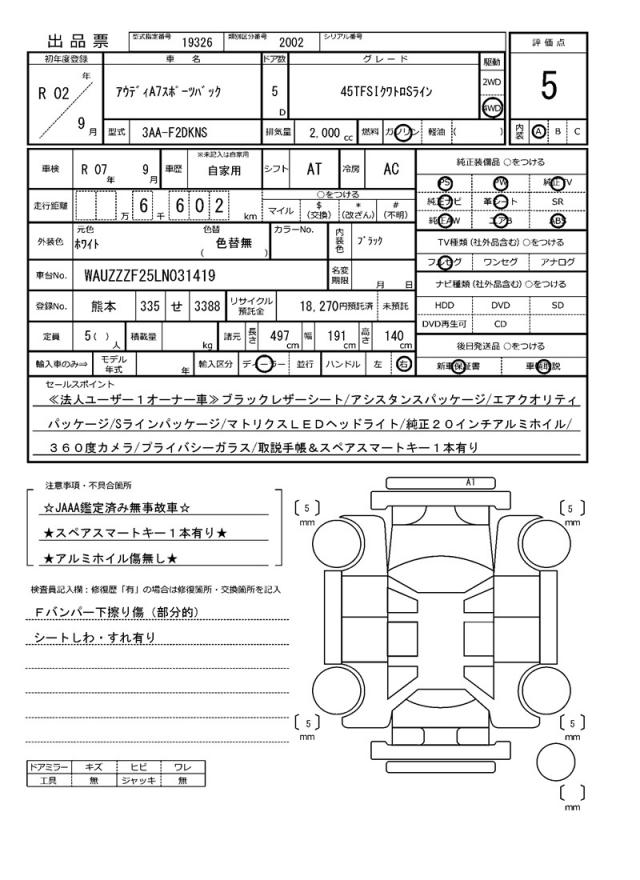 出品票 型式指定番号 19326 類別区分番号 2002 シリアル番号
評価点
初年度登録 車名 ドア数 グレード 駆動
R 02 年 9 月 アウディA7スポーツバック 5 D 45TFSIクワトロSライン 2WD 4WD
5
型式 3AA-F2DKNS 排気量 2,000 cc 燃料 ガソリン 軽油 ( )
内装 A B C
車検 R 07 年 9 月 車歴 ※未記入は自家用 自家用 シフト AT 冷房 AC
純正装備品 ○をつける
PS PW 純正TV
走行距離 万 6 千 6 0 2 km
○をつける
マイル $ (交換) * (改ざん) # (不明)
純正ナビ 革シート SR
純正AW エアB ABS
外装色 元色 ホワイト 色替 色替無 ( ) カラーNo. 内装色 ブラック
TV種類 (社外品含む) ○をつける
フルセグ ワンセグ アナログ
車台No. WAUZZZF25LN031419 名変期限 月 日
ナビ種類 (社外品含む) ○をつける
登録No. 熊本 335 せ 3388 リサイクル預託金 18,270円預託済 未預託
HDD DVD SD
DVD再生可 CD
定員 5 ( ) 人 積載量 kg 諸元 長さ 497 cm 幅 191 cm 高さ 140 cm
後日発送品 ○をつける
輸入車のみ⇒ モデル年式 年 輸入区分 ディーラー 並行 ハンドル 左 右
新車保証書 車輌取説
セールスポイント
≪法人ユーザー1オーナー車≫ブラックレザーシート/アシスタンスパッケージ/エアクオリティ
パッケージ/Sラインパッケージ/マトリクスLEDヘッドライト/純正20インチアルミホイル/
360度カメラ/プライバシーガラス/取説手帳&スペアスマートキー1本有り
注意事項・不具合箇所
☆JAAA鑑定済み無事故車☆
★スペアスマートキー1本有り★
★アルミホイル傷無し★
検査員記入欄：修復歴「有」の場合は修復箇所・交換箇所を記入
Fバンパー下擦り傷 (部分的)
シートしわ・すれ有り
A1
5 mm
5 mm
5 mm
5 mm
mm
ドアミラー キズ ヒビ ワレ
工具 無 ジャッキ 無